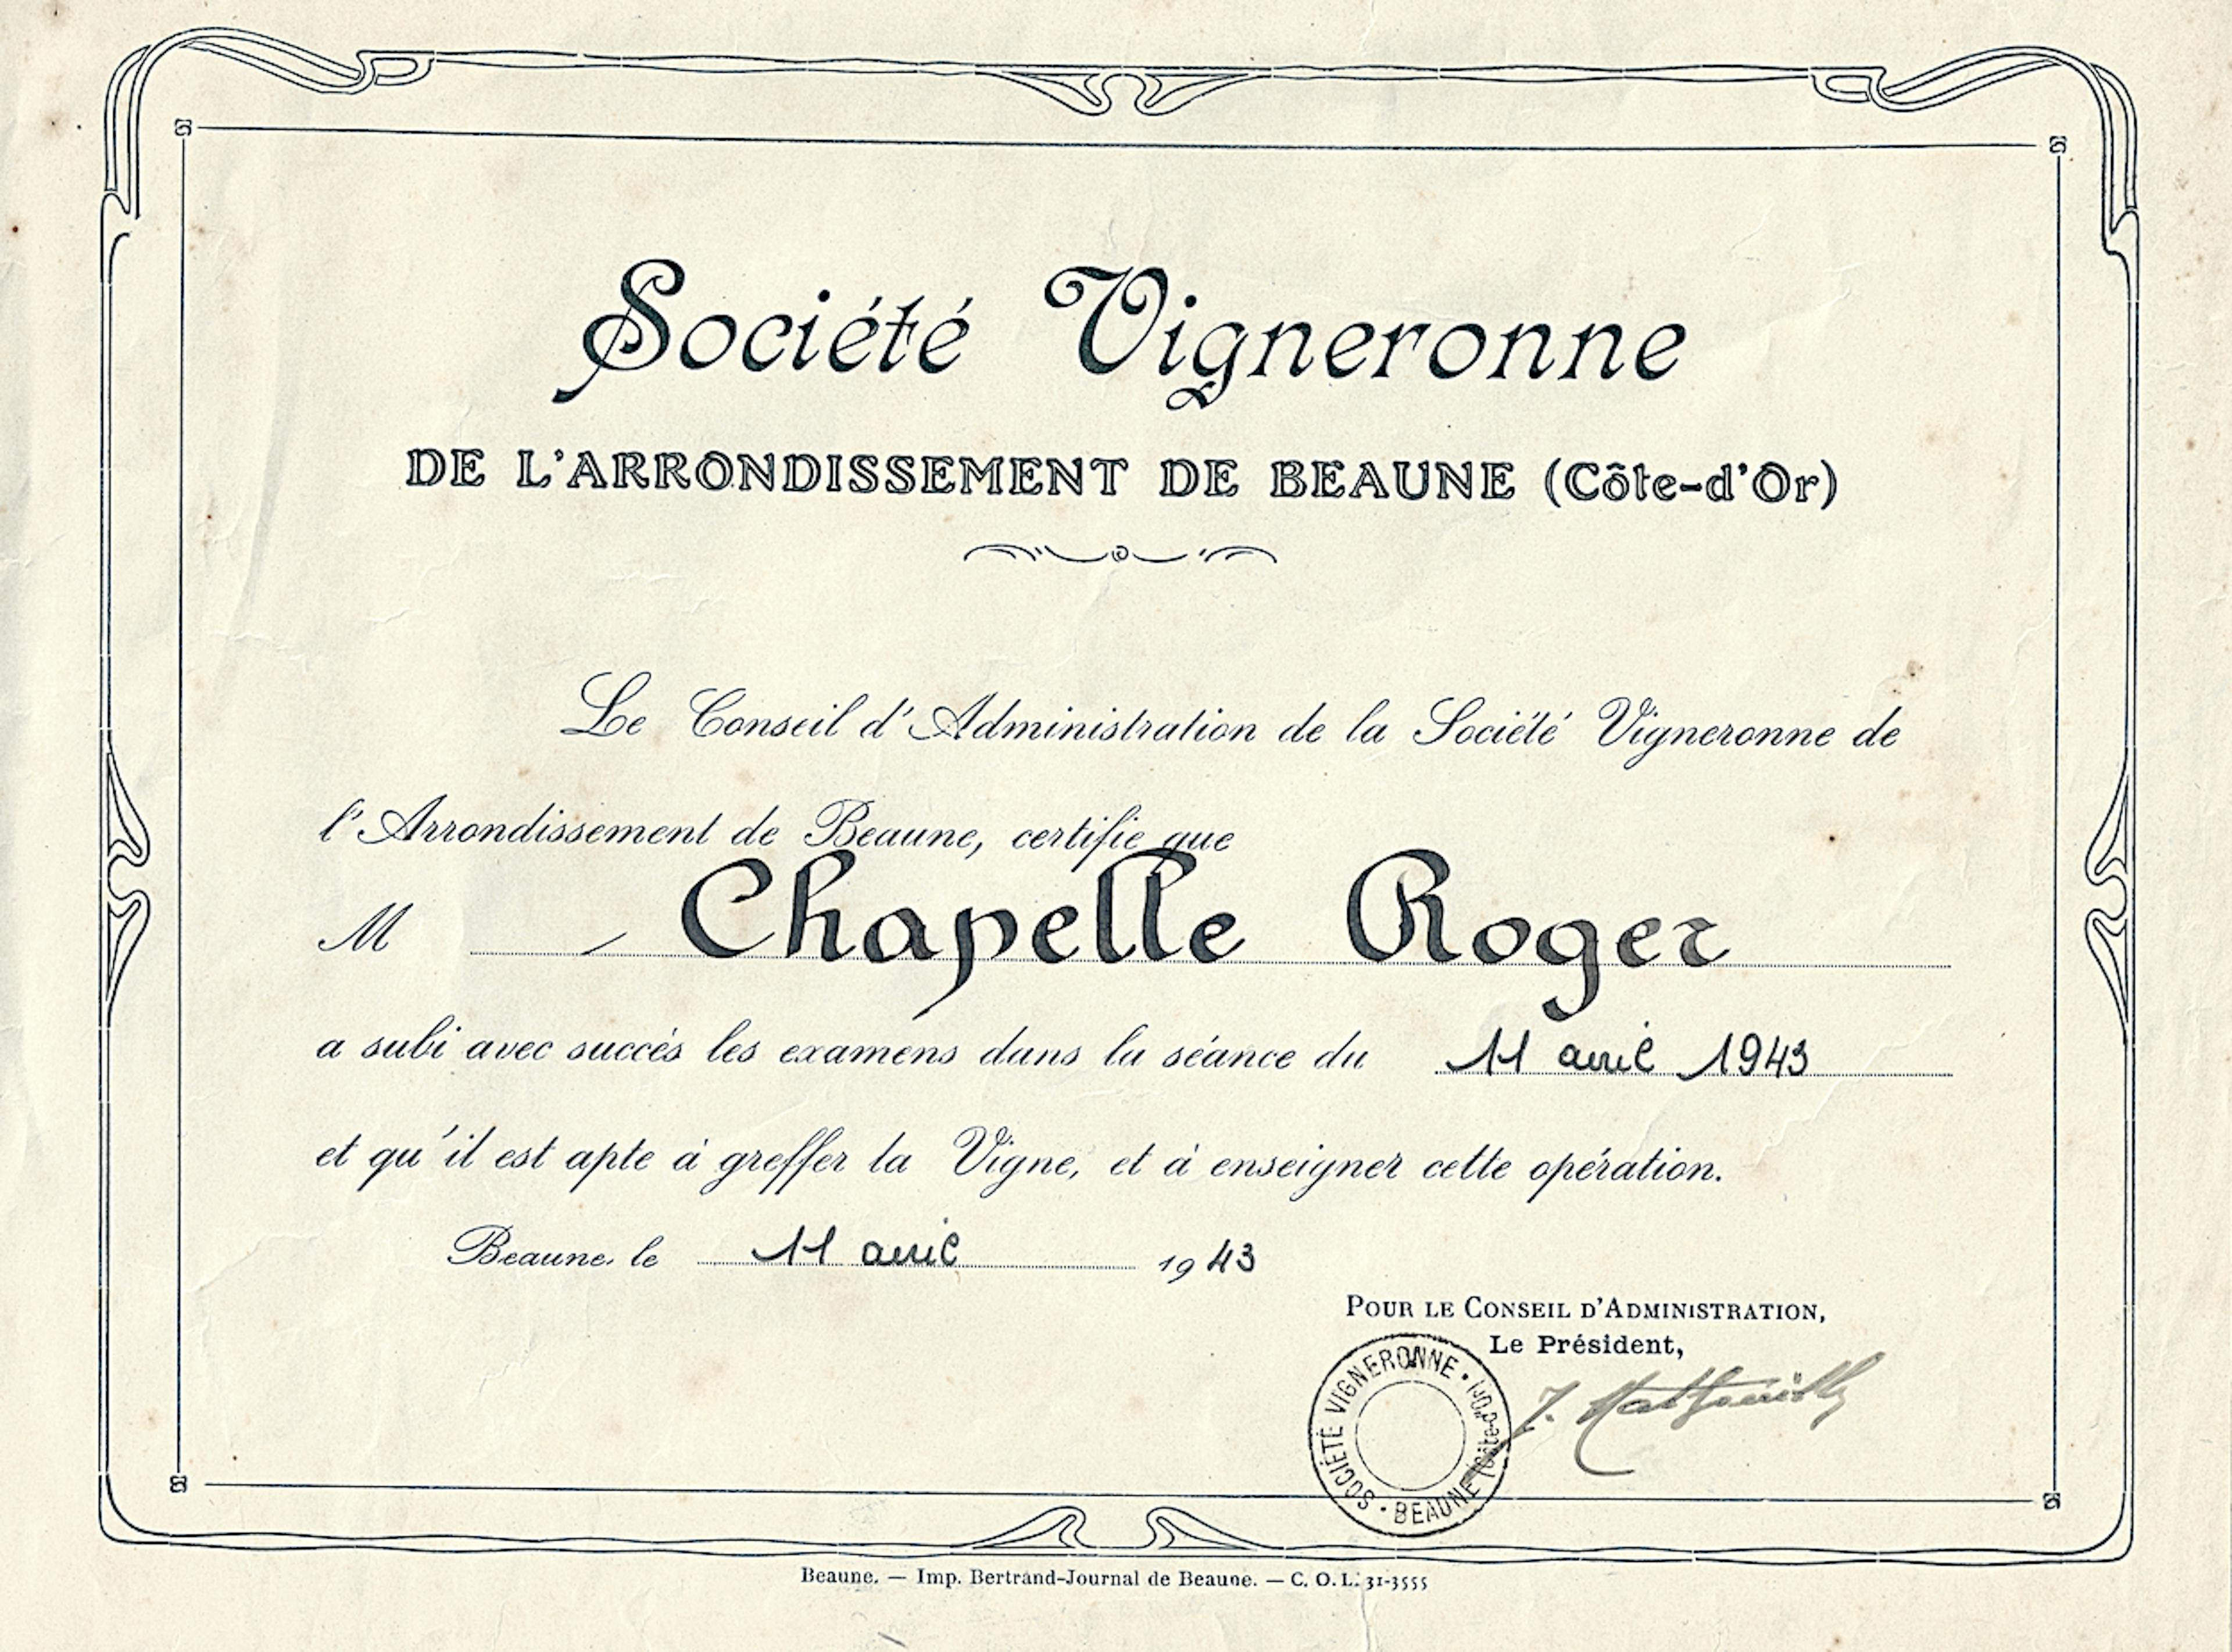 Société Vigneronne
DE L'ARRONDISSEMENT DE BEAUNE (Côte-d'Or)
Le Conseil d'Administration de la Société Vigneronne de
l'Arrondissement de Beaune, certifie que
M Chapelle Roger
a subi avec succès les examens dans la séance du 11 avril 1943
et qu'il est apte à greffer la Vigne, et à enseigner cette opération.
Beaune, le 11 avril 1943
POUR LE CONSEIL D'ADMINISTRATION,
Le Président,
SOCIÉTÉ VIGNERONNE • BEAUNE (Côte-d'Or) •
Beaune. — Imp. Bertrand-Journal de Beaune. — C. O. L. 31-3555